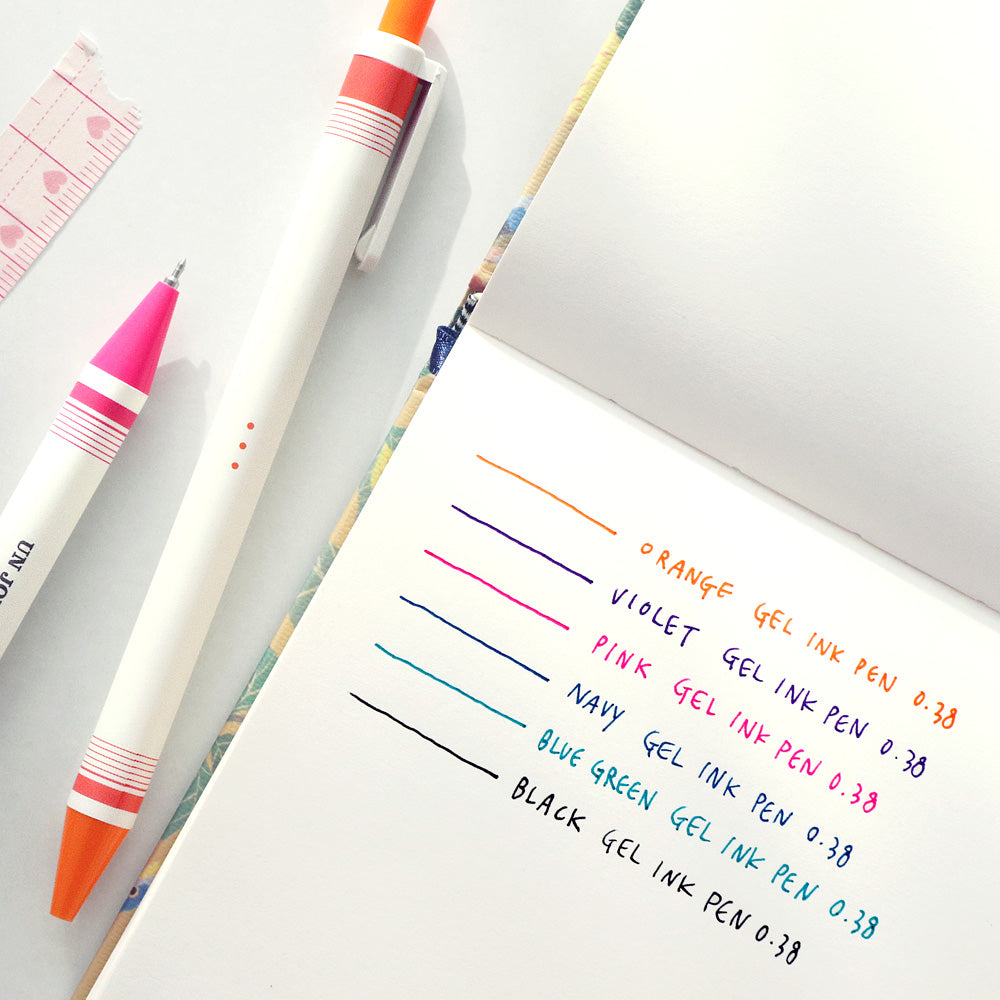 ORANGE GEL INK PEN 0.38
VIOLET GEL INK PEN 0.38
PINK GEL INK PEN 0.38
NAVY GEL INK PEN 0.38
BLUE GREEN GEL INK PEN 0.38
BLACK GEL INK PEN 0.38
UN